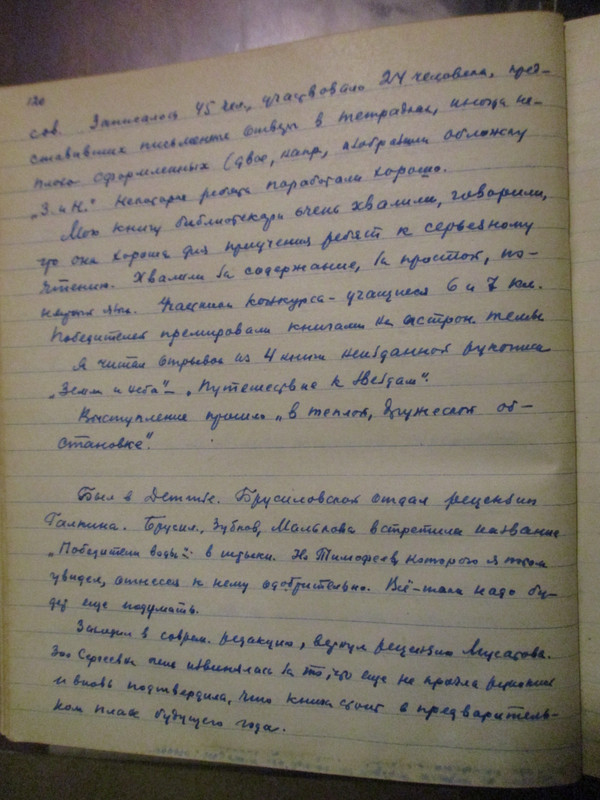 120
сов. Записалось 45 чел., участвовало 24 человека, пред-
ставивших письменные ответы в тетрадках, иногда не-
плохо оформленных (двое, напр., изобразили обложку
„З. и Н."). Некоторые ребята поработали хорошо.
Мою книгу библиотекари очень хвалили, говорили,
что она хороша для приучения ребят к серьезному
чтению. Хвалили за содержание, за простой, по-
нятный язык. Участники конкурса - учащиеся 6 и 7 кл.
Победителей премировали книгами на астрон. темы
Я читал отрывок из 4 книги неизданной рукописи
„Земля и небо" – „Путешествие к звездам".
Выступление прошло „в теплой, дружеской об-
становке".
Был в Детгизе. Брусиловской отдал рецензию
Галкина. Брусил., Зубков, Малькова встретили название
„Победители воды" в штыки. Но Тимофеев, которого я тоже
увидел, отнесся к нему одобрительно. Всё-таки надо бу-
дет еще подумать.
Заходил в соврем. редакцию, вернул рецензию Мусатова.
Сергеевна очень извинялась за то, что еще не прочла рукопись
и вновь подтвердила, что книга стоит в предваритель-
ном плане будущего года.